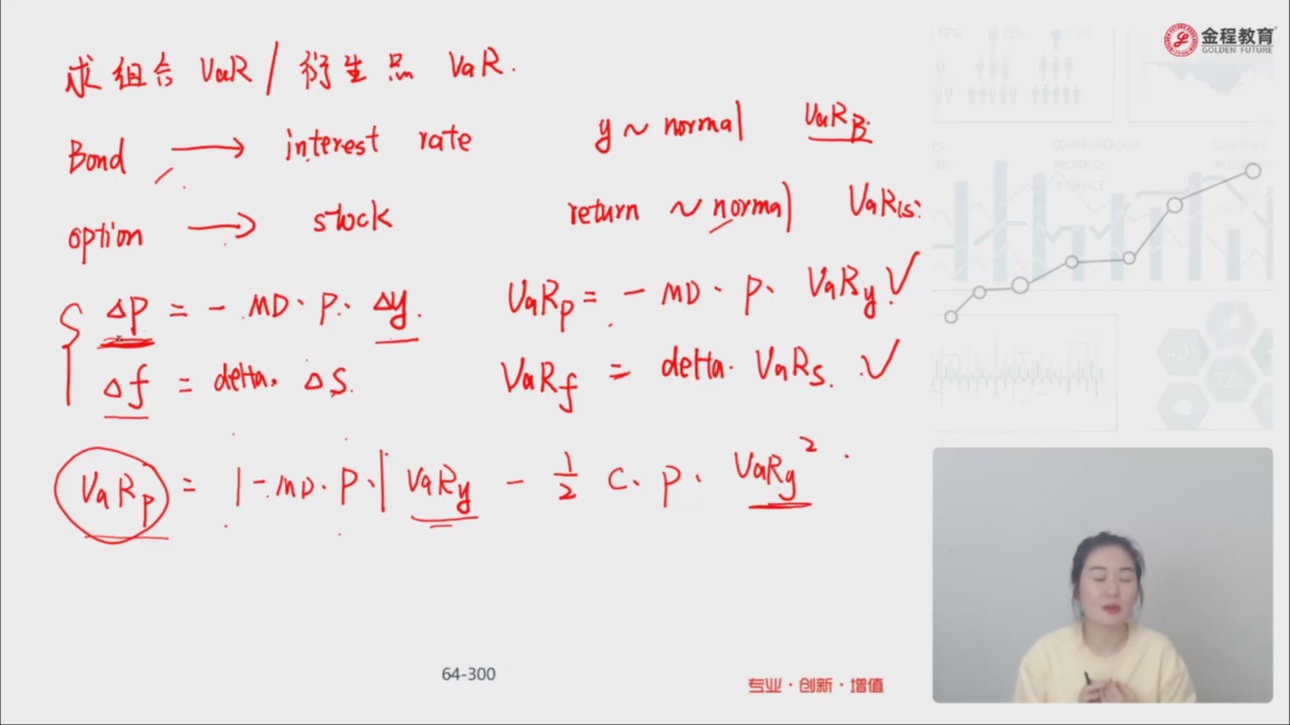 金程教育
GOLDEN FUTURE
求组合 VaR / 衍生品 VaR.
Bond → interest rate y ~ normal VaR_B
option → stock return ~ normal VaR_s
Δp = - MD · p · Δy VaR_p = - MD · p · VaR_y ✓
Δf = delta · Δs VaR_f = delta · VaR_s ✓
VaR_p = |- MD · p ·| VaR_y - 1/2 C · p · VaR_y²
64-300
专业·创新·增值